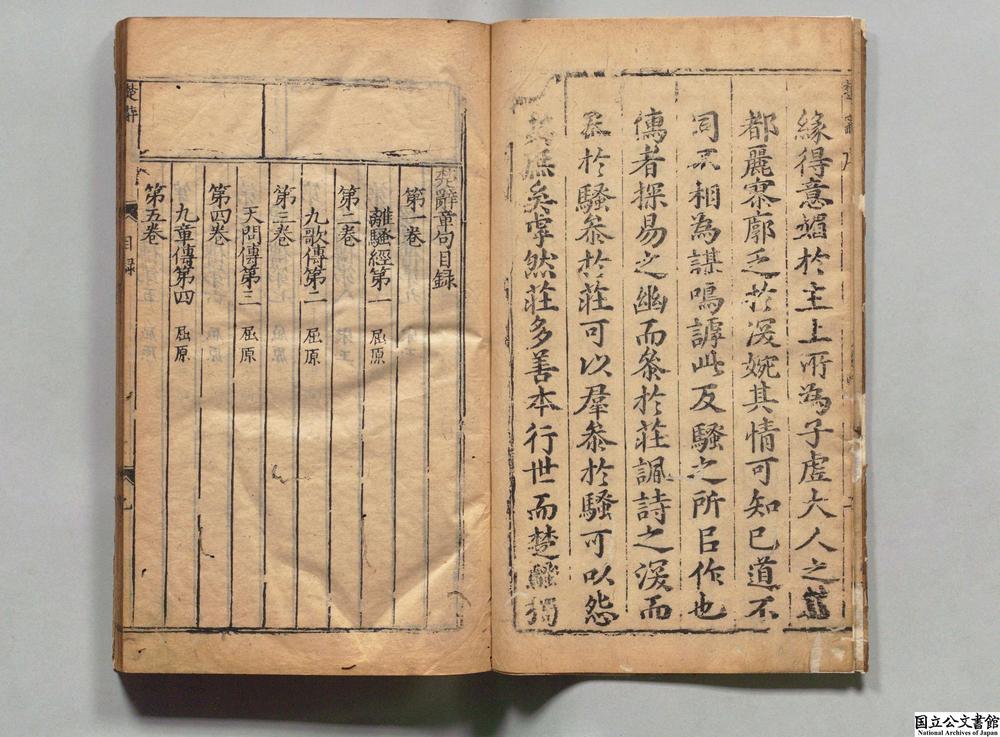 緣得意媚於主上所為子虛大人之篇
都麗寥廓乏於深婉其情可知已道不
同不相為謀嗚謔此反騷之所㠯作也
傳者探易之幽而叅於莊諷詩之深而
叅於騷叅於莊可以羣叅於騷可以怨
其庶矣乎然莊多善本行世而楚辭獨
楚辭章句目錄
第一卷
離騷經第一 屈原
第二卷
九歌傳第二 屈原
第三卷
天問傳第三 屈原
第四卷
九章傳第四 屈原
第五卷
目錄
国立公文書館
National Archives of Japan